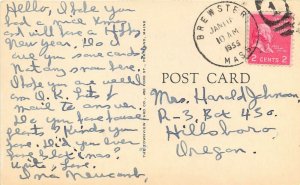 Hello, I hope you
had a nice Xmas
and will have a Happy
New Year. Its O.K.
are you some cards
Not any snow here.
I hope you are well. I
am O.K. lots of
mail to answer.
Do you have house
plants & kinds you
have. Did you ever
have
Write, Love.
Ina Newcomb.
BREWSTER
JAN 11
10 AM
1955
MASS.
2 CENTS 2
POST CARD
Mrs. Harold Johnson
R-3, Box 430.
Hillsboro,
Oregon.